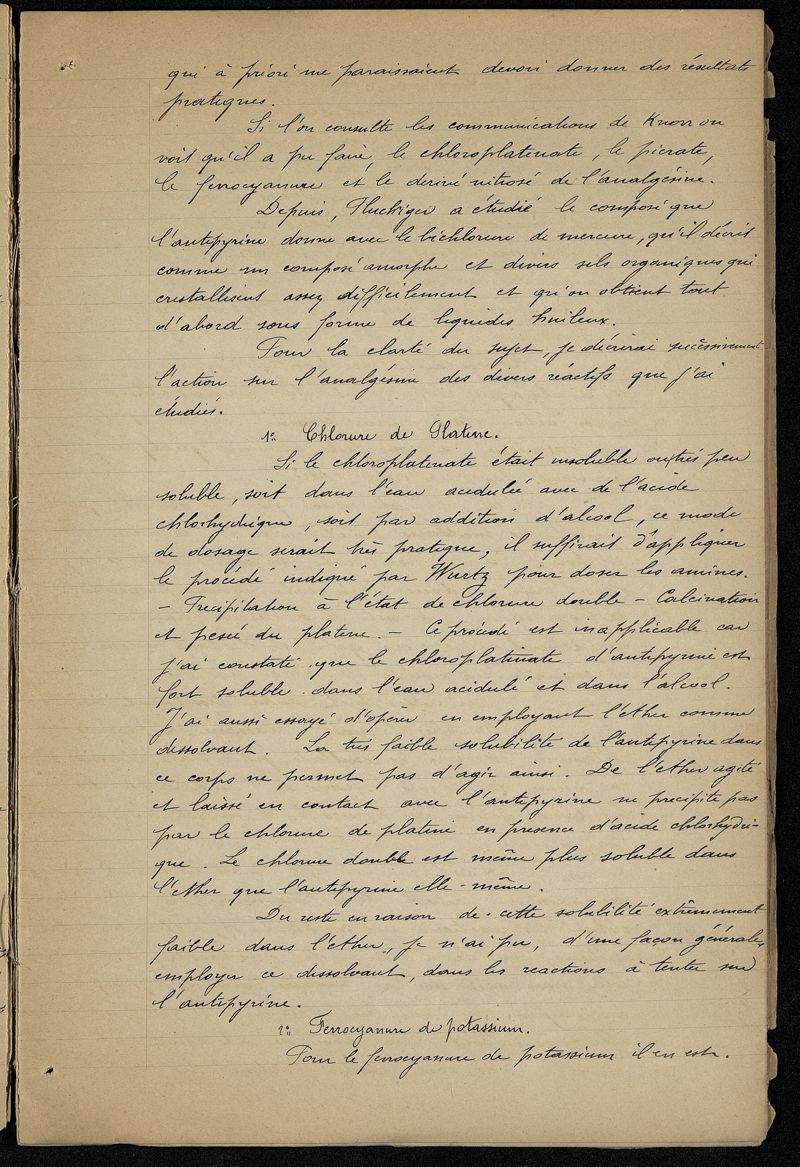 qui à priori me paraissaient devoir donner des résultats
pratiques.
Si l'on consulte les communications de Knorr on
voit qu'il a pu faire, le chloroplatinate, le picrate,
le ferrocyanure et le derivé nitrosé de l'analgésine.
Depuis, Fluckiger a étudié le composé que
l'antipyrine donne avec le bichlorure de mercure, qu'il décrit
comme un composé amorphe et divers sels organiques qui
cristallisent assez difficilement et qu'on obtient tout
d'abord sous forme de liquides huileux.
Pour la clarté du sujet, je décrirai successivement
l'action sur l'analgésine des divers réactifs que j'ai
étudiés.
1º. Chlorure de Platine.
Si le chloroplatinate était insoluble ou très peu
soluble, soit dans l'eau acidulée avec de l'acide
chlorhydrique, soit par addition d'alcool, ce mode
de dosage serait très pratique, il suffirait d'appliquer
le procédé indiqué par Wurtz pour doser les amines.
- Precipitation à l'état de chlorure double - Calcination
et pesée du platine. - Ce procédé est inapplicable car
j'ai constaté que le chloroplatinate d'antipyrine est
fort soluble dans l'eau acidulé et dans l'alcool.
J'ai aussi essayé d'opérer en employant l'éther comme
dissolvant. La très faible solubilité de l'antipyrine dans
ce corps ne permet pas d'agir ainsi. De l'éther agité
et laissé en contact avec l'antipyrine ne precipite pas
par le chlorure de platine en presence d'acide chlorhydri-
que. Le chlorure double est même plus soluble dans
l'éther que l'antipyrine elle-même.
Du reste en raison de cette solubilité extrêmement
faible dans l'éther, je n'ai pu, d'une façon générale,
employer ce dissolvant, dans les reactions à tenter sur
l'antipyrine.
2º. Ferrocyanure de potassium.
Pour le ferrocyanure de potassium il en est